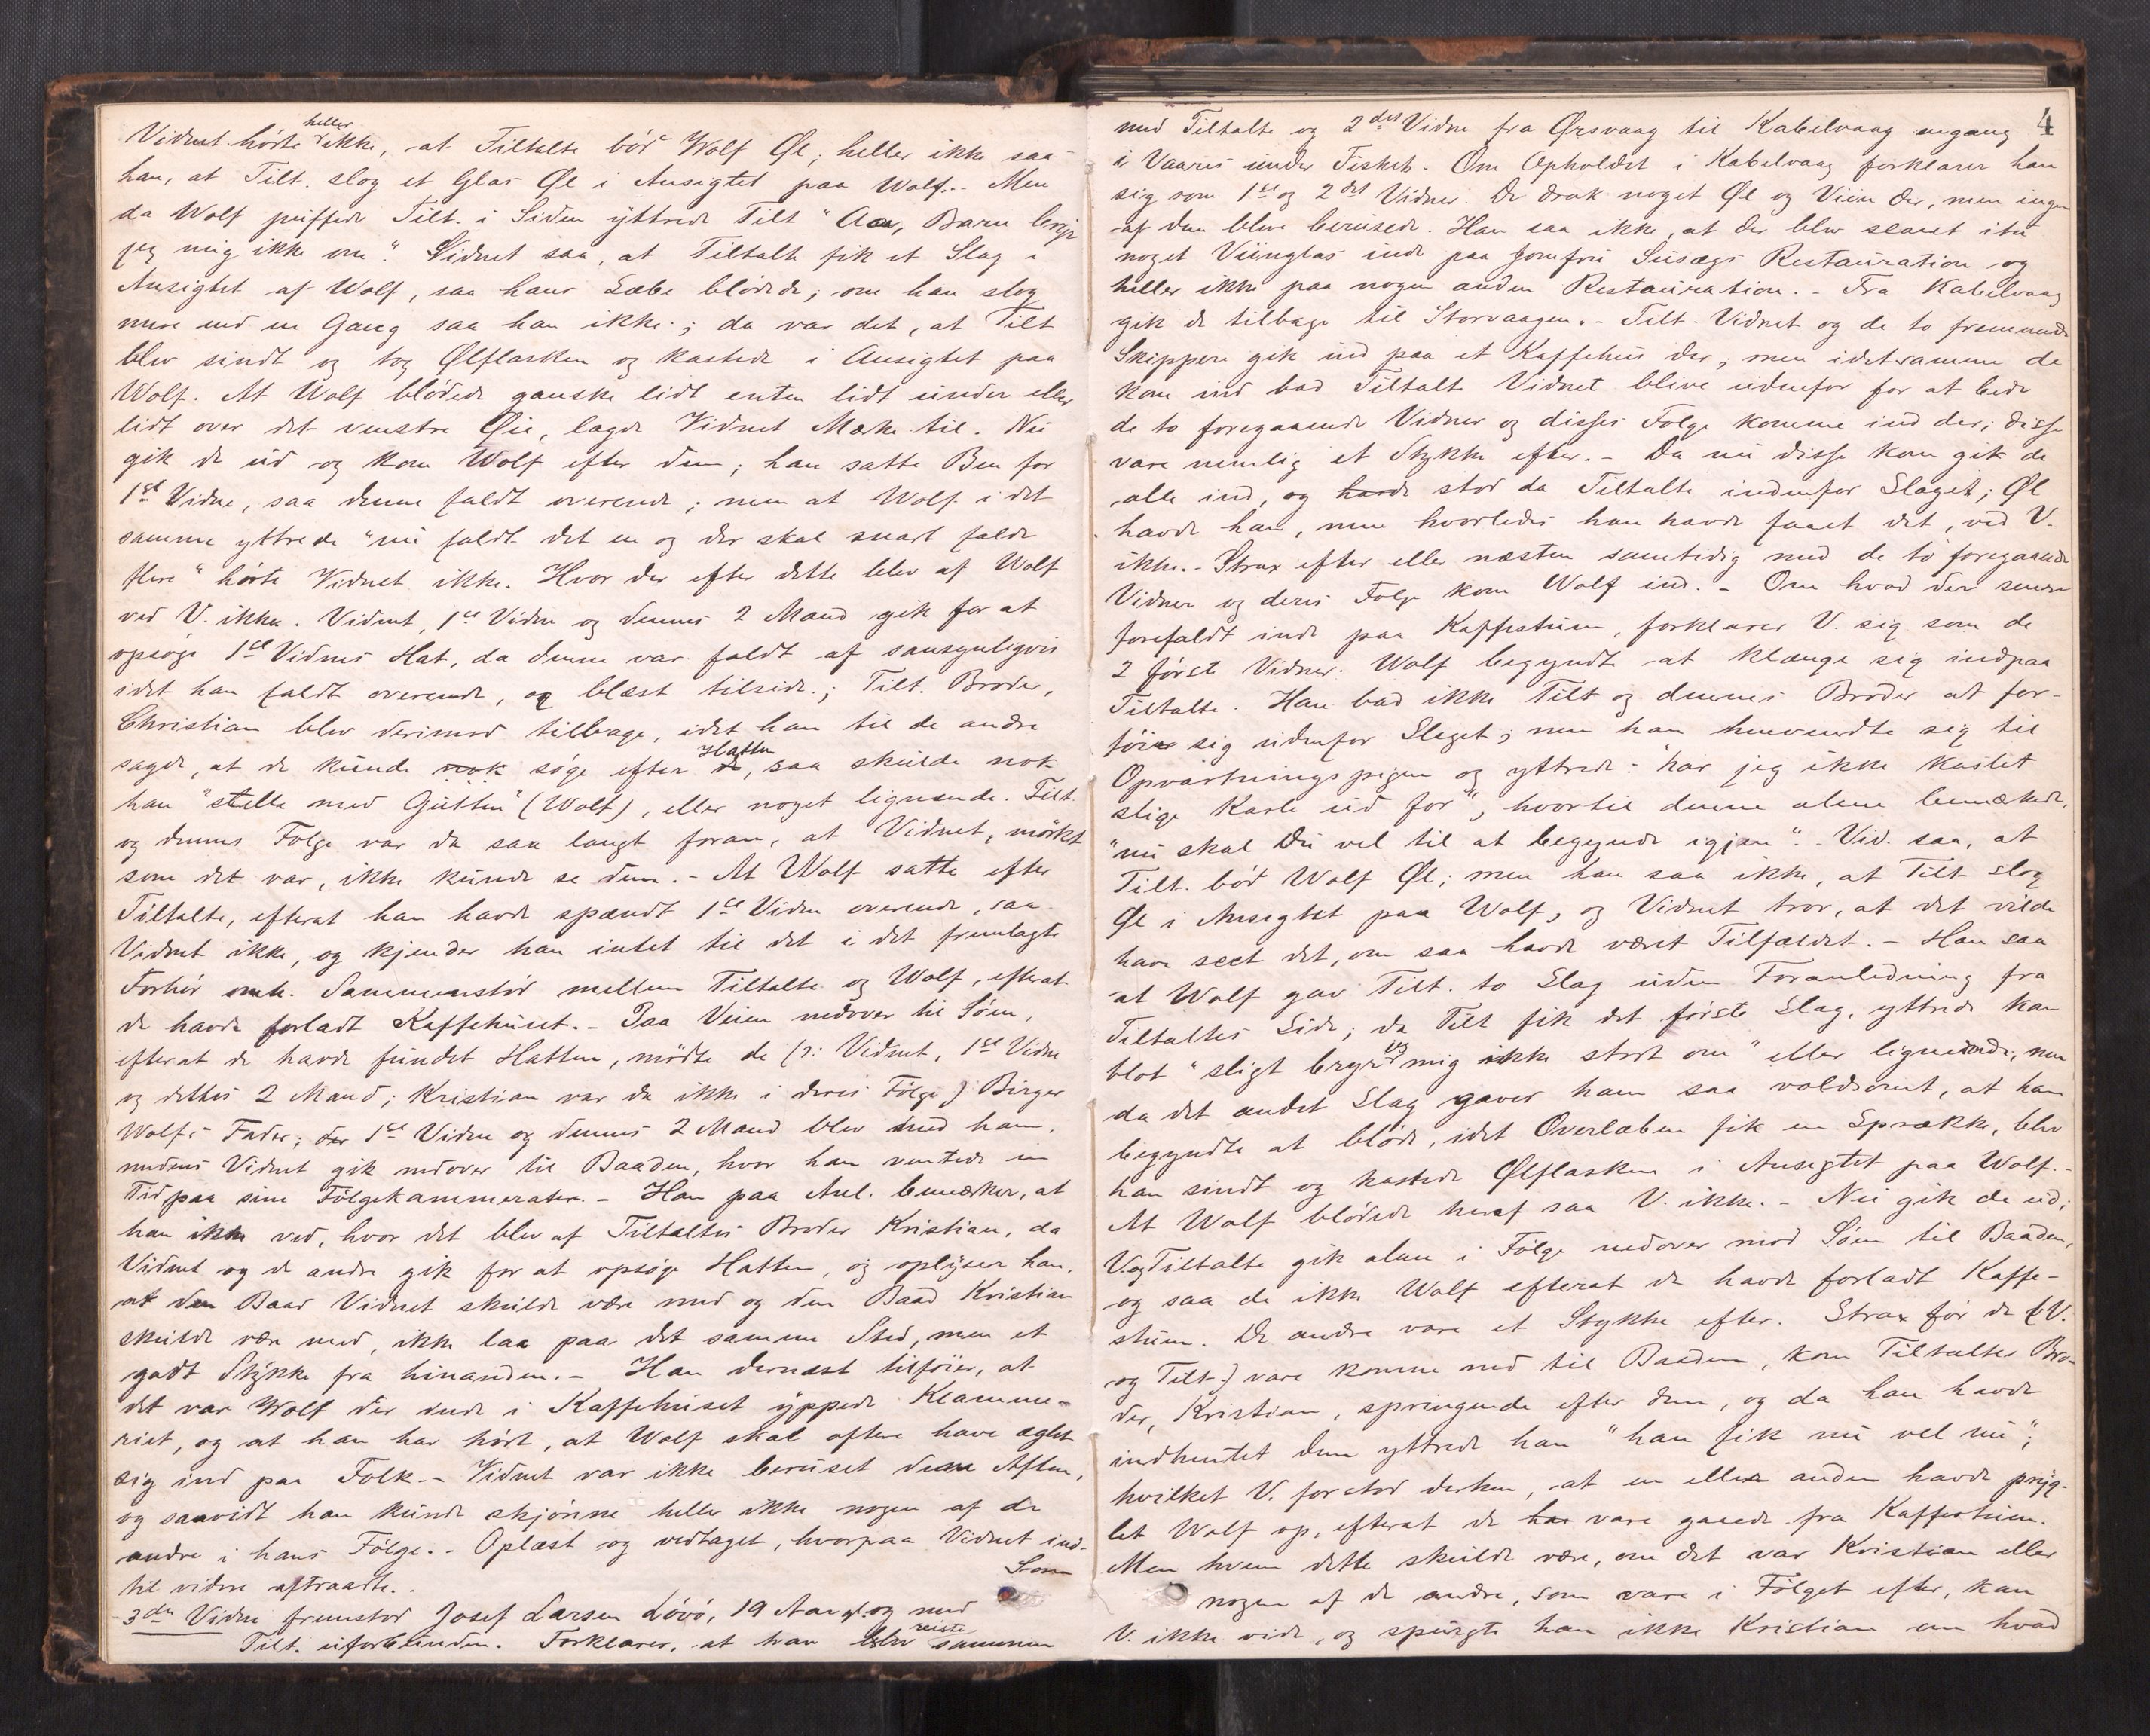 Vidnet hørte heller ikke, at Tiltalte bød Wolf Øl; heller ikke saa
han, at Tilt. slog et Glas Øl i Ansigtet paa Wolf. - Men
da Wolf puffede Tilt. i Siden yttrede Tilt "Aa, Barn bryr
jeg mig ikke om". Vidnet saa, at Tiltalte fik et Slag i
Ansigtet af Wolf, saa hans Læbe blødede; om han slog
mere end en Gang saa han ikke; da var det, at Tilt
blev sindt og tog Ølflasken og kastede i Ansigtet paa
Wolf. At Wolf blødede ganske lidt enten lidt under eller
lidt over det venstre Øie, lagde Vidnet Mærke til. Nu
gik de ud og kom Wolf efter dem; han satte Ben for
1st Vidne, saa denne faldt overende; men at Wolf i det
samme yttrede "nu faldt det en og der skal snart falde
flere" hørte Vidnet ikke. Hvor der efter dette blev af Wolf
ved V. ikke. Vidnet, 1st Vidne og dennes 2 Mand gik for at
opsøge 1st Vidnes Hat, da denne var faldt af sansynligvis
idet han faldt overende, og blæst tilside; Tilt. Broder,
Christian blev derimod tilbage, idet han til de andre
sagde, at de kunde nok søge efter Hatten, saa skulde nok
han "stelle med Gutten" (Wolf), eller noget lignende. Tilt.
og dennes Følge var da saa langt foran, at Vidnet, mørkt
som det var, ikke kunde se dem. - At Wolf satte efter
Tiltalte, efterat han havde spændt 1st Vidne overende, saa
Vidnet ikke, og kjender han intet til det i det fremlagte
Forhør omh. Sammenstød mellem Tiltalte og Wolf, efterat
de havde forladt Kaffehuset. - Paa Veien nedover til Søen,
efterat de havde fundet Hatten, mødte de (ɔ: Vidnet, 1st Vidne
og dettes 2 Mand; Kristian var da ikke i deres Følge) Birger
Wolfs Fader; 1st Vidne og dennes 2 Mand blev med ham,
medens Vidnet gik nedover til Baaden, hvor han ventede en
Tid paa sine Følgekammerater. - Han paa Anl. bemærker, at
han ikke ved, hvor det blev af Tiltaltes Broder Kristian, da
Vidnet og de andre gik for at opsøge Hatten, og oplyser han,
at den Baad Vidnet skulde være med og den Baad Kristian
skulde være med, ikke laa paa det samme Sted, men et
godt Stykke fra hinanden. - Han dernæst tilføier, at
det var Wolf der inde i Kaffehuset yppede Klamme-
riet, og at han har hørt, at Wolf skal oftere have eglet
sig ind paa Folk. - Vidnet var ikke beruset denne Aften,
og saavidt han kunde skjønne heller ikke nogen af de
andre i hans Følge. - Oplæst og vedtaget, hvorpaa Vidnet ind-
til videre aftraadte.
3de Vidne fremstod Josef Larsen Løvø, 19 Aar gl. og med
Tilt. uforbunden. Forklarer, at han reiste sammen
Som
4
med Tiltalte og 2det Vidne fra Ørsvaag til Kabelvaag engang
i Vaares under Fisket. Om Opholdet i Kabelvaag forklarer han
sig som 1st og 2det Vidner. De drak noget Øl og Viin der, men ingen
af dem bleve berusede. Han saa ikke, at der blev slaaet itu
noget Viinglas inde paa Jomfru Restauration og
heller ikke paa nogen anden Restauration. - Fra Kabelvaag
gik de tilbage til Storvaagen. - Tilt. Vidnet og de to fremmede
Skippere gik ind paa et Kaffehus der; men idetsamme de
kom ind bad Tiltalte Vidnet blive udenfor for at bede
de to foregaaende Vidner og disses Følge komme ind der; disse
vare nemlig et Stykke efter. - Da nu disse kom gik de
alle ind, og havde stod da Tiltalte indenfor Slaget; Øl
havde han, men hvorledes han havde faaet det, ved V.
ikke. - Strax efter eller næsten samtidig med de to foregaaende
Vidner og deres Følge kom Wolf ind. - Om hvad der senere
forefaldt inde paa Kaffestuen, forklarer V. sig som de
2 første Vidner. Wolf begyndte at klænge sig indpaa
Tiltalte. Han bad ikke Tilt og dennes Broder at for-
føie sig udenfor Slaget; men han henvendte sig til
Opvartningspigen og yttrede: "har jeg ikke kastet
slige Karle ud før", hvortil denne alene bemærkede,
"nu skal Du vel til at begynde igjen". Vid. saa, at
Tilt. bød Wolf Øl; men han saa ikke, at Tilt slog
Øl i Ansigtet paa Wolf, og Vidnet tror, at det vilde
have seet det, om saa havde været Tilfældet. - Han saa
at Wolf gav Tilt. to Slag uden Foranledning fra
Tiltaltes Side; da Tilt fik det første Slag, yttrede han
blot "sligt bryr jeg mig ikke stort om" eller lignende, men
da det andet Slag gaves ham saa voldsomt, at han
begyndte at bløde, idet Overlæben fik en Sprække, blev
han sindt og kastede Ølflasken i Ansigtet paa Wolf. -
At Wolf blødede heraf saa V. ikke. - Nu gik de ud;
V. og Tiltalte gik alene i Følge nedover mod Søen til Baaden,
og saa de ikke Wolf efterat de havde forladt Kaffe-
stuen. De andre vare et Stykke efter. Strax før de (V.
og Tilt.) vare komne ned til Baaden, kom Tiltaltes Bro-
der, Kristian, springende efter dem, og da han havde
indhentet dem yttrede han "han fik nu vel nu";
hvilket V. forstod derhen, at en eller anden havde pryg-
let Wolf op, efterat de har vare gaaede fra Kaffestuen.
Men hvem dette skulde være, om det var Kristian eller
nogen af de andre, som vare i Følget efter, kan
V. ikke vide, og spurgte han ikke Kristian om hvad